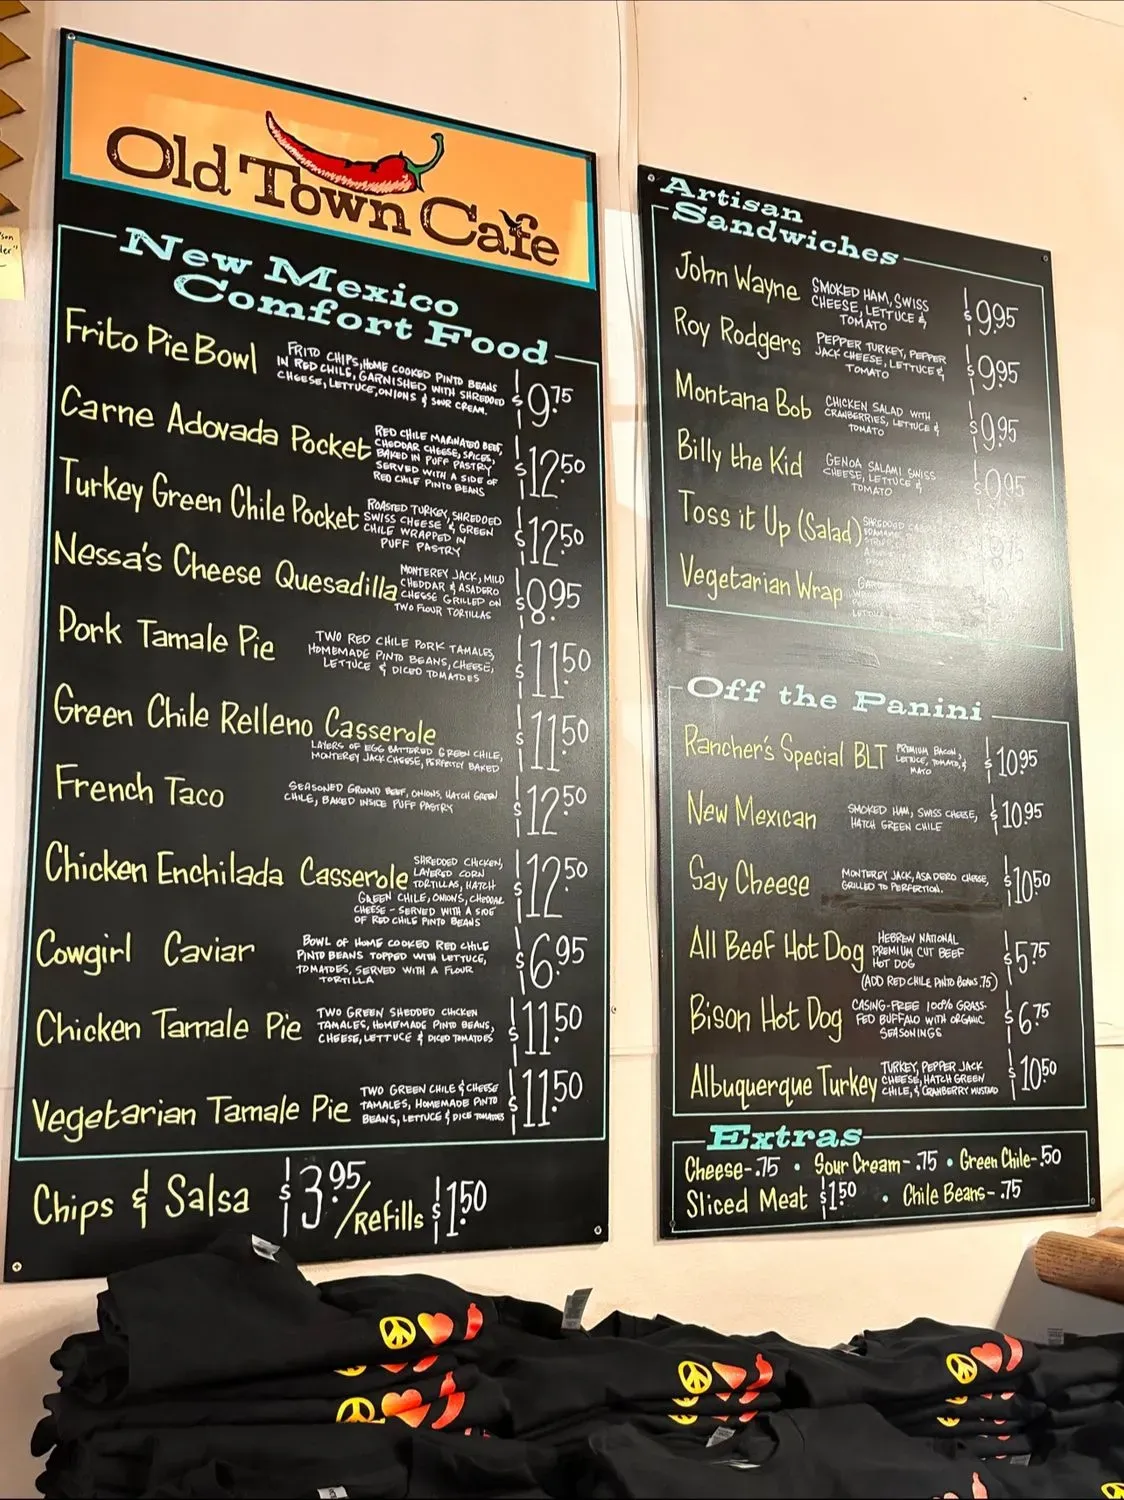 Old Town Cafe
New Mexico
Comfort Food
Frito Pie Bowl
FRITO CHIPS, HOME COOKED PINTO BEANS
IN RED CHILE, GARNISHED WITH SHREDDED
CHEESE, LETTUCE, ONIONS & SOUR CREAM.
$9.75
Carne Adovada Pocket
RED CHILE MARINATED BEEF,
CHEDDAR CHEESE, SPICES,
BAKED IN PUFF PASTRY
SERVED WITH A SIDE OF
RED CHILE PINTO BEANS
$12.50
Turkey Green Chile Pocket
ROASTED TURKEY, SHREDDED
SWISS CHEESE & GREEN
CHILE WRAPPED IN
PUFF PASTRY
$12.50
Nessa's Cheese Quesadilla
MONTEREY JACK, MILD
CHEDDAR & ASADERO
CHEESE GRILLED ON
TWO FLOUR TORTILLAS
$8.95
Pork Tamale Pie
TWO RED CHILE PORK TAMALES,
HOMEMADE PINTO BEANS, CHEESE,
LETTUCE & DICED TOMATOES
$11.50
Green Chile Relleno Casserole
LAYERS OF EGG BATTERED GREEN CHILE,
MONTEREY JACK CHEESE, PERFECTLY BAKED
$11.50
French Taco
SEASONED GROUND BEEF, ONIONS, HATCH GREEN
CHILE, BAKED INSIDE PUFF PASTRY
$12.50
Chicken Enchilada Casserole
SHREDDED CHICKEN,
LAYERED CORN
TORTILLAS, HATCH
GREEN CHILE, ONIONS, CHEDDAR
CHEESE - SERVED WITH A SIDE
OF RED CHILE PINTO BEANS
$12.50
Cowgirl Caviar
BOWL OF HOME COOKED RED CHILE
PINTO BEANS TOPPED WITH LETTUCE,
TOMATOES, SERVED WITH A FLOUR
TORTILLA
$6.95
Chicken Tamale Pie
TWO GREEN SHEDDED CHICKEN
TAMALES, HOMEMADE PINTO BEANS,
CHEESE, LETTUCE & DICED TOMATOES
$11.50
Vegetarian Tamale Pie
TWO GREEN CHILE & CHEESE
TAMALES, HOMEMADE PINTO
BEANS, LETTUCE & DICE TOMATOES
$11.50
Chips & Salsa $3.95/Refills $1.50
Artisan
Sandwiches
John Wayne
SMOKED HAM, SWISS
CHEESE, LETTUCE &
TOMATO
$9.95
Roy Rodgers
PEPPER TURKEY, PEPPER
JACK CHEESE, LETTUCE &
TOMATO
$9.95
Montana Bob
CHICKEN SALAD WITH
CRANBERRIES, LETTUCE &
TOMATO
$9.95
Billy the Kid
GENOA SALAMI, SWISS
CHEESE, LETTUCE &
TOMATO
$9.95
Toss it Up (Salad)
SHREDDED
Vegetarian Wrap
Off the Panini
Rancher's Special BLT
PREMIUM BACON,
LETTUCE, TOMATO, &
MAYO
$10.95
New Mexican
SMOKED HAM, SWISS CHEESE,
HATCH GREEN CHILE
$10.95
Say Cheese
MONTEREY JACK, ASADERO CHEESE,
GRILLED TO PERFECTION.
$10.50
All Beef Hot Dog
HEBREW NATIONAL
PREMIUM CUT BEEF
HOT DOG
(ADD RED CHILE PINTO BEANS .75)
$5.75
Bison Hot Dog
CASING-FREE 100% GRASS-
FED BUFFALO WITH ORGANIC
SEASONINGS
$6.75
Albuquerque Turkey
TURKEY, PEPPER JACK
CHEESE, HATCH GREEN
CHILE, & CRANBERRY MUSTARD
$10.50
Extras
Cheese-.75 • Sour Cream-.75 • Green Chile-.50
Sliced Meat $1.50 • Chile Beans-.75